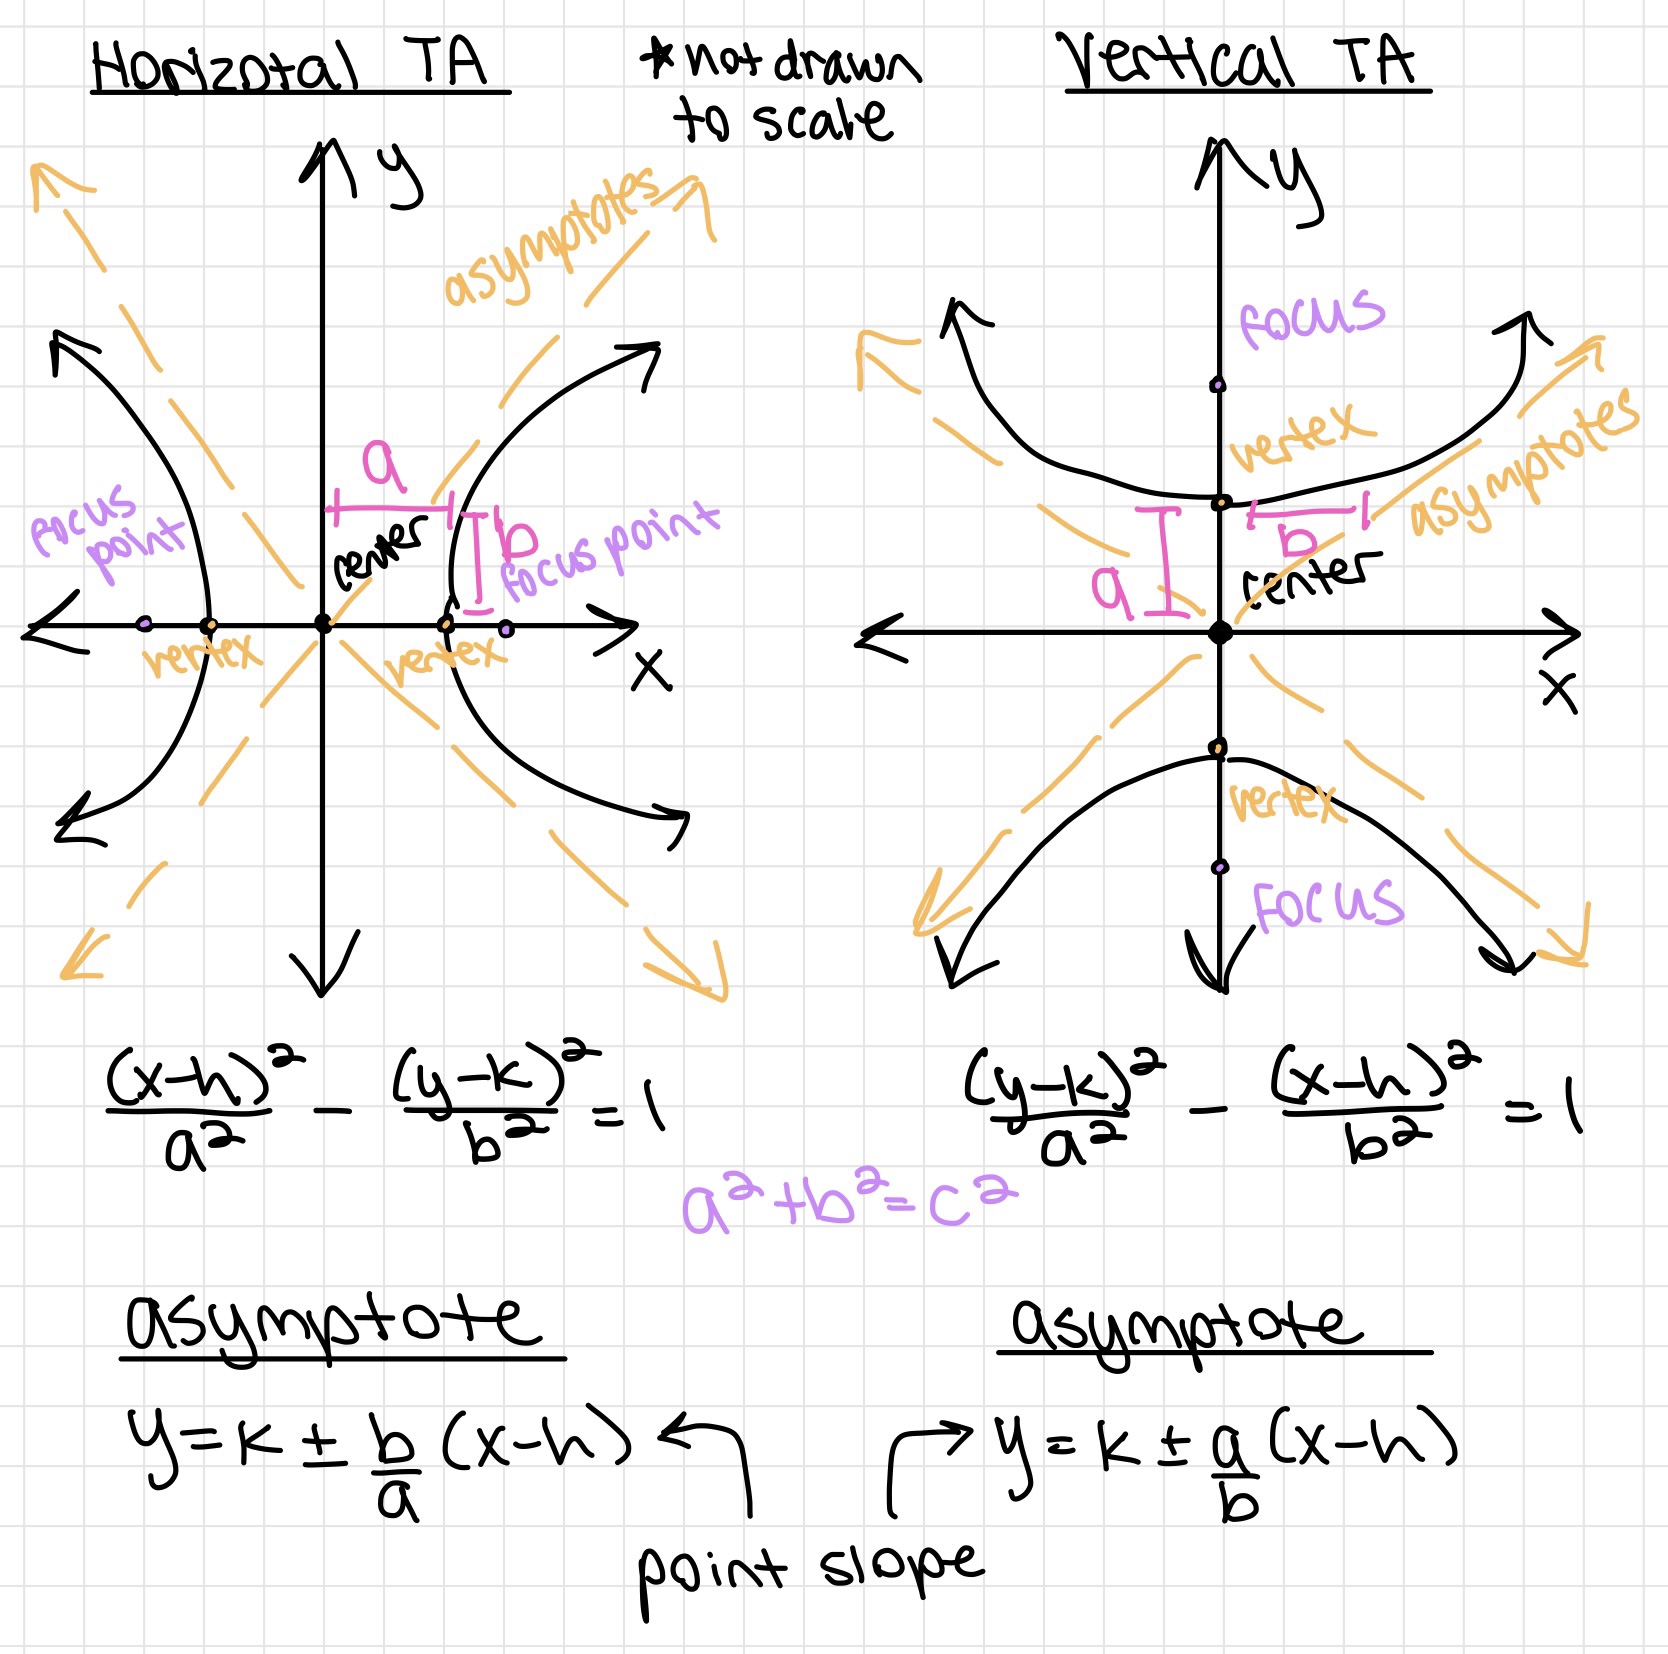 Horizotal TA
* not drawn
to scale
Vertical TA
y
asymptotes
a
focus
point
center
b
focus point
vertex
vertex
x
y
focus
vertex
asymptotes
b
a
center
x
vertex
Focus
(x-h)²/a² - (y-k)²/b² = 1
(y-k)²/a² - (x-h)²/b² = 1
a²+b²=c²
asymptote
asymptote
y=k ± b/a (x-h)
y=k ± a/b (x-h)
point slope